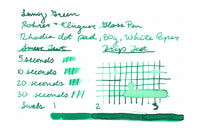 Lamy Green
Rohrer + Klingner Glass Pen
Rhodia dot Pad, 80g, White Paper
Smear Test Drip Test
5 seconds
10 seconds
20 seconds
30 seconds
Swab 1 2 3